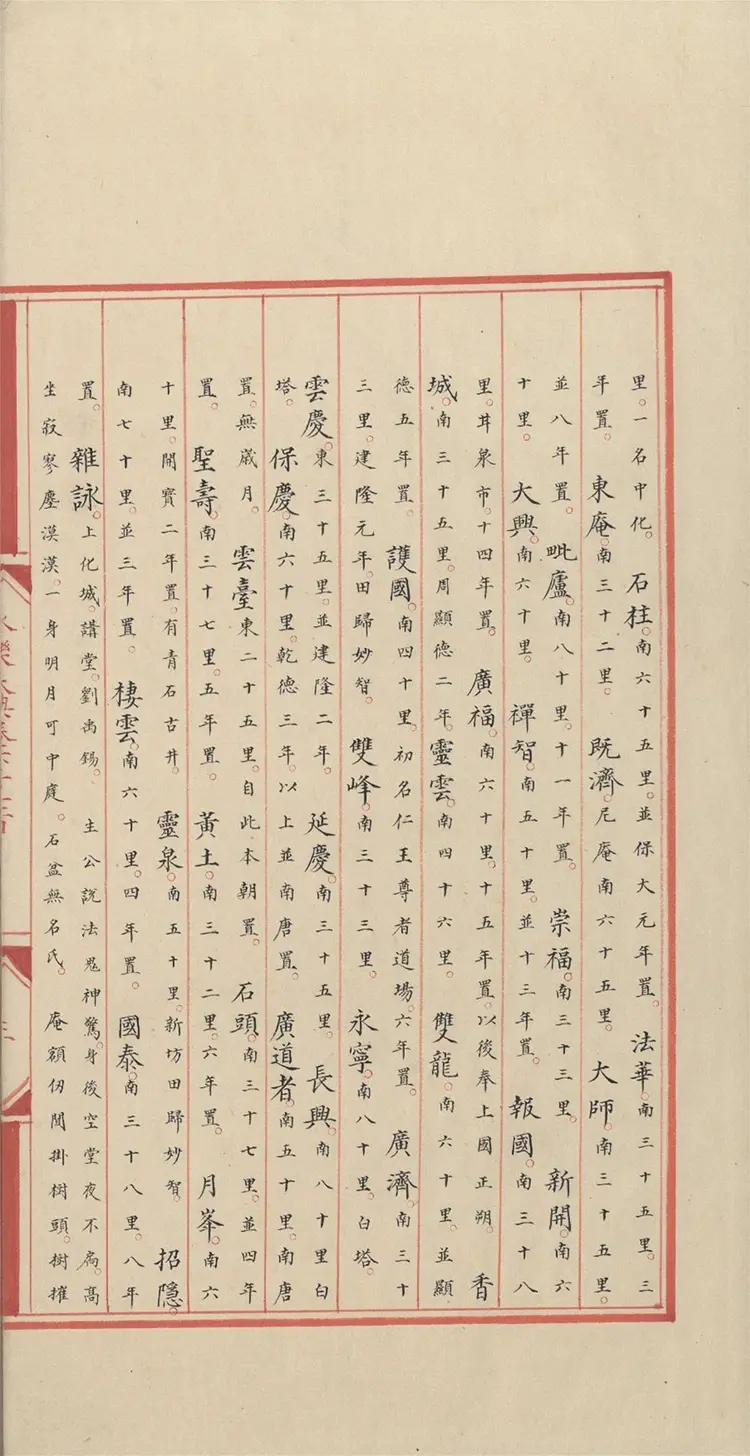 里。一名中化。　石柱。南六十五里。並保大元年置。　法華。南三十五里。三
年置。　東庵。南三十二里。　既濟。尼庵南六十五里。　大師。南三十五里。
並八年置。　毗盧。南八十里。十一年置。　崇福。南三十三里。　新開。南六
十里。　大興。南六十里。　禪智。南五十里。並十三年置。　報國。南三十八
里。井泉市。十四年置。　廣福。南六十里。十五年置。以後奉上國正朔。　香
城。南三十五里。周顯德二年。靈雲。南四十六里。　雙龍。南六十里。並顯
德五年置。　護國。南四十里。初名仁王尊者道場。六年置。　廣濟。南三十
三里。建隆元年。田歸妙智。　雙峰。南三十三里。　永寧。南八十里。白塔。
雲慶。東三十五里。並建隆二年。　延慶。南三十五里。　長興。南八十里白
塔。　保慶。南六十里。乾德三年。以上並南唐置。　廣道者。南五十里。南唐
置。無歲月。　雲臺。東二十五里。自此本朝置。　石頭。南三十七里。並四年
置。　聖壽。南三十七里。五年置。　黃土。南三十二里。六年置。　月峯。南六
十里。開寶二年置。有青石古井。　靈泉。南五十里。新坊田歸妙智。　招隱。
南七十里。並三年置。　棲雲。南六十里。四年置。　國泰。南三十八里。八年
置。　雜詠。上化城。講堂。劉禹錫。　生公說法鬼神驚。身後空堂夜不扃。高
坐寂寥塵漠漠。一身明月可中庭。石盆無名氏。　庵額仞間掛樹頭。樹擁